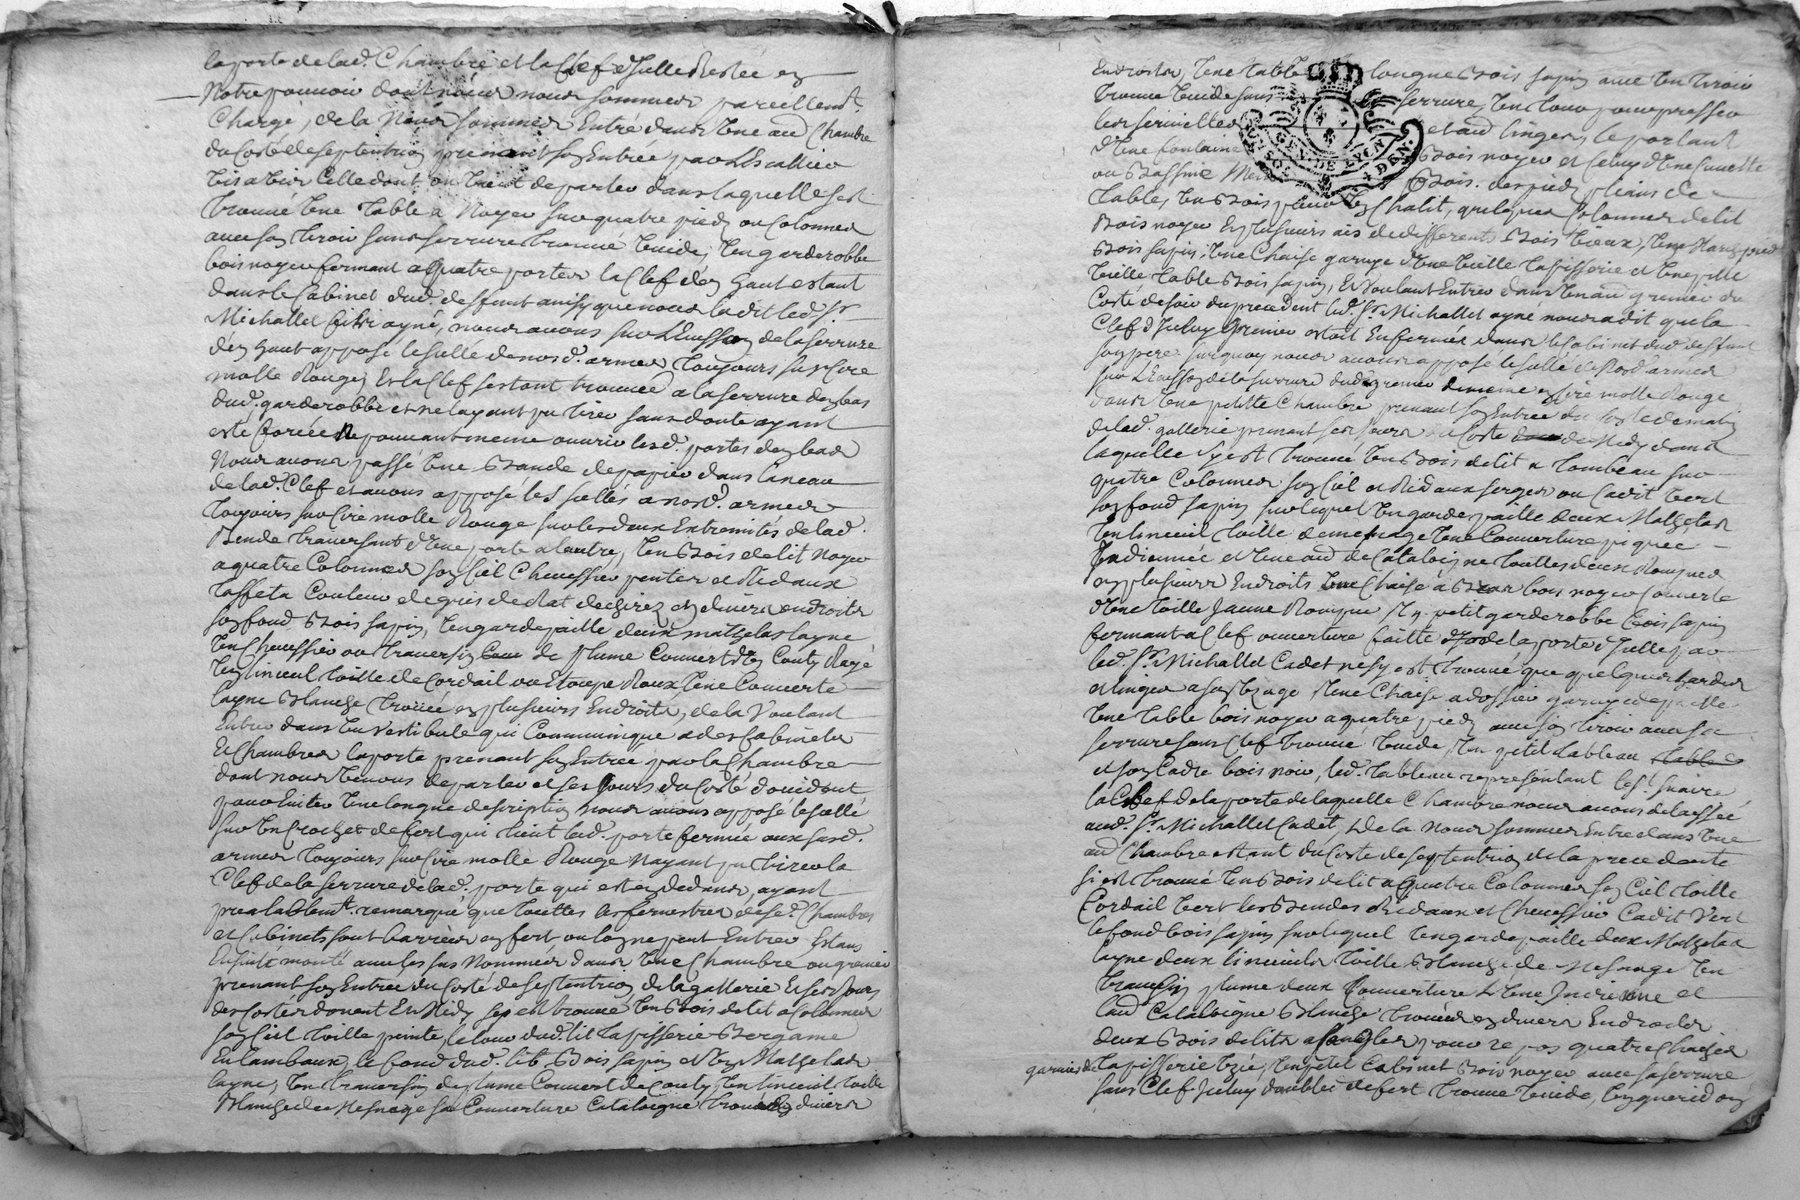 la porte de lad. Chambre et la Clef d'Icelle Restée en
Notre pouvoir dont nous nous sommes pareillemt.
Chargé, de la Nous sommes Entré dans Une aud Chambre
du Costé de septentrion prenant son Entrée par L'Escallier
Vis a Vis Celle dont on Vient de parler dans laquelle sest
trouvé Une Table a Noyer sur quatre pieds ou Colonnes
avec son tiroir sans serrure trouvé Vuide, Un garderobbe
bois noyer fermant a quatre portes la Clef d'en haut estant
dans le Cabinet dud. deffunt ainsy que nous la dit led. Sr.
Michallet fils ayné, nous avons sur L'Eusson de la serrure
d'en haut apposé le scellé de nosd. armes Toujours sur Cire
molle Rouge, Et la Clef sestant trouvée a la serrure d'en bas
dud. garderobbe et ne layant pu tirer sans doute ayant
esté forcée Ne pouvant meme ouvrir lesd. portes d'en bas
Nous avons passé Une Bande de papier dans laneau
de lad. Clef et avons apposé les scellés a nosd. armes
Toujours sur Cire molle Rouge sur les deux Extremités de lad.
Bende traversant d'Une porte a lautre, Un Bois de lit Noyer
a quatre Colonnes son Ciel Chevessier pentes et Rideaux
Taffeta Couleur de gris de Rat dechirez en divers endroits
son fond Bois sapin, Un garde paille deux matzelas layne
Un Chevessier ou traversin de plume Couvert d'Un Couty Rayé
Un linceul toille de Cordail ou Etoupe Roux Une Couverte
layne Blanche trouée en plusieurs Endroits, de la Voulant
Entrer dans Un Vestibule qui Communique a des Cabinets
Et Chambres la porte prenant son Entrée par la Chambre
dont nous Venons de parler et ses Jours du Costé d'occident
pour Eviter Une longue description Nous avons apposé le scellé
sur Un Crochet de fert qui tient lad. porte fermée aux susd.
armes Toujours sur Cire molle Rouge Nayant pu tirer la
Clef de la serrure de lad. porte qui est en dedans, ayant
prealablemt. remarqué que toutes les fenestres desd. Chambres
et Cabinets sont barrées en fert ou lon ne peut Entrer Estans
Ensuite monté avec les sus Nommés dans Une Chambre ou grenier
prenant son Entrée du Costé de septentrion de la gallerie Et ses Jours
des Costés d'orient Et Midy sest trouvé Un Bois de lit a Colonnes
son Ciel toille peinte, le tour dud. lit tapisserie Bergame
En lambeaux, le fond dud. lit Bois sapin et Un Matzelas
layne, Un traversin de plume Couvert de Couty, Un linceul toille
Blanche de Mesnage sa Couverture Cataloigne trouée en divers
Endroits, Une table longue Bois sapin avec Un tiroir
trouvé Vuide sans serrure, Un tour pour presser
les serviettes et aud linges, le portant
d'Une fontaine Bois noyer et Celuy d'Une Cuvette
ou Bassine Bois. des pieds pleins de
GEN. DE LYON
4 DEN.
Tables, Un Bois pour Un Chalit, quelques Colonnes de lit
Bois noyer Et plusieurs ais de differents Bois Vieux, Une Marchepied
Bois sapin, Une Chaise garnye d'Une Vielle Tapisserie et Une ptte
Vielle Table Bois sapin, Et Voulant Entrer dans Un aud grenier du
Costé de soir du precedent led. Sr. Michallet ayné nous a dit que la
Clef d'Iceluy Grenier estoit Enfermée dans le Cabinet dud. deffunt
son pere surquoy nous avons apposé le scellé de Nosd. armes
sur L'Eusson de la serrure dud. grenier de meme en Cire molle Rouge
dans Une petitte Chambre prenant son Entrée du Costé de matin
de lad. gallerie prenant ses Jours du Costé de Midy dans
laquelle sy est trouvé Un Bois de lit a Tombeau sur
quatre Colonnes son Ciel et Rideaux serges ou Cadit Vert
son fond sapin sur lequel Un garde paille deux Matzelas
Un linceul toille de menage Une Couverture piquée
Indiennée et Une aud de Cataloigne toutes deux Rompues
en plusieurs Endroits Une Chaise a Bras bois noyer Couverte
d'Une toille Jaune Rompue, Un petit garderobbe Bois sapin
fermant a Clef ouverture faitte de la porte d'Icelle par
led. Sr. Michallet Cadet ne sy est trouvé que quelques hardes
et linges a son Uzage Une Chaise a dossier garnye de paille
Une table bois noyer a quatre pieds avec son tiroir avec sa
serrure sans Clef trouvé Vuide, Un petit tableau
et son Cadre bois noir, led. tableau representant le St. Suaire
la Clef de la porte de laquelle Chambre nous avons delaissée
aud. Sr. Michallet Cadet, De la Nous sommes Entré dans Une
aud Chambre estant du Costé de septentrion de la precedente
si est trouvé Un Bois de lit a Quatre Colonnes son Ciel toille
Cordail Vert les Bendes Rideaux et Chevessier Cadit Vert
le fond bois sapin sur lequel Un garde paille deux Matzelas
layne deux linceuls toille Blanche de Mesnage Un
traversin plume deux Couverture L'Une Indienne et
laud Cataloigne Blanche trouées en divers Endroits
deux Bois de lits a sangles pour repos quatre Chaises
garnies de Tapisserie Uzée, Un petit Cabinet Bois noyer avec sa serrure
sans Clef Iceluy doublée de fert trouvé Vuide, Un gueridon